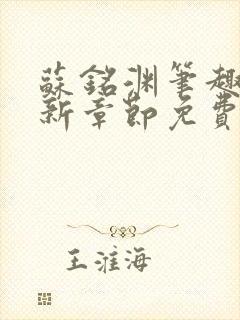 蘇銘淵筆趣
新章節免費
王淮海